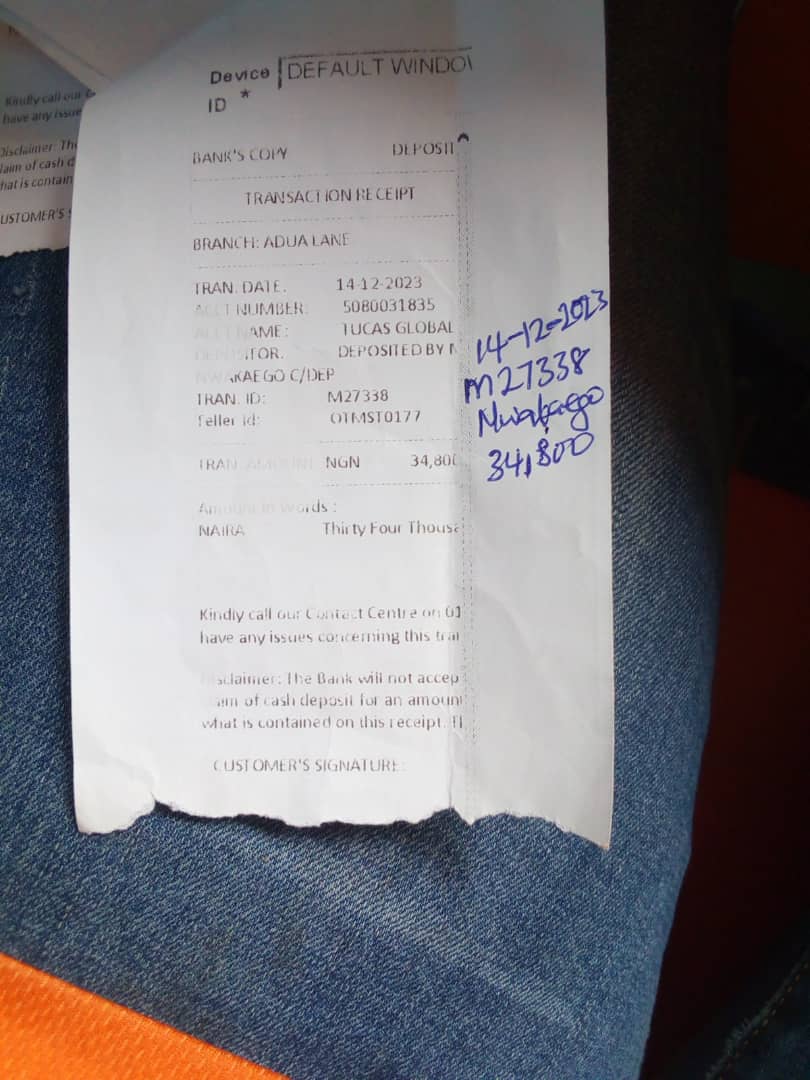 Kindly call our
have any issue
Disclaimer: Th
laim of cash d
hat is contain
USTOMER'S
Device DEFAULT WINDOW
ID *
BANK'S COPY DEPOSIT
TRANSACTION RECEIPT
BRANCH: ADUA LANE
TRAN. DATE. 14-12-2023
ACCT NUMBER: 5080031835
ACCT NAME: TUCAS GLOBAL
DEPOSITOR. DEPOSITED BY N
NWAKAEGO C/DEP
TRAN. ID: M27338
Teller id: OTMST0177
TRAN AMOUNT NGN 34,800
Amount in Words :
NAIRA Thirty Four Thousa
Kindly call our Contact Centre on 01
have any issues concerning this tran
Disclaimer: The Bank will not accep
aim of cash deposit for an amount
what is contained on this receipt.
CUSTOMER'S SIGNATURE:
14-12-2023
M27338
Nwakaego
34,800